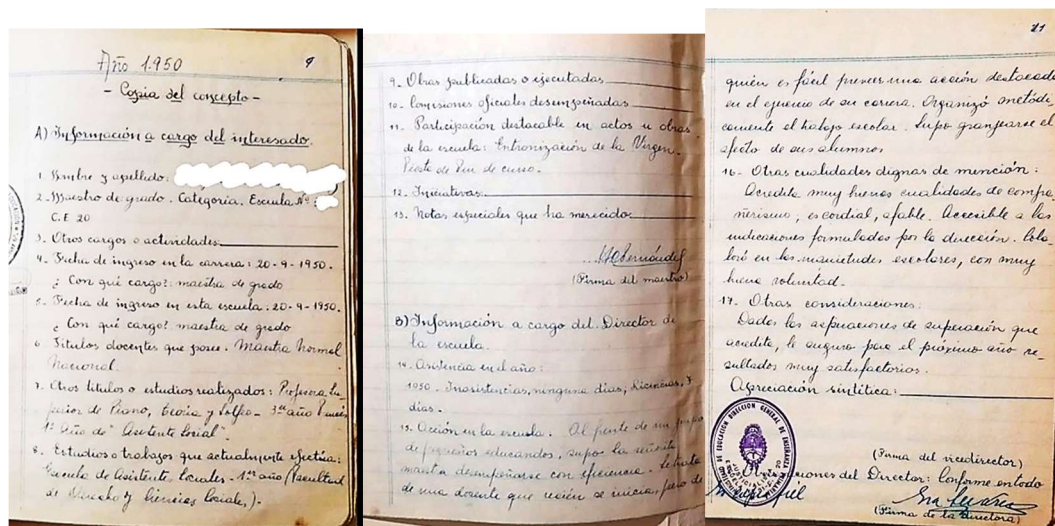 Año 1.950
9
- Copia del concepto -
A) Información a cargo del interesado.
1. Nombre y apellido:
2. Maestro de grado. Categoría. Escuela Nº
C.E 20
3. Otros cargos o actividades:
4. Fecha de ingreso en la carrera: 20-9-1950.
¿Con qué cargo?: maestra de grado
5. Fecha de ingreso en esta escuela. 20-9-1950.
¿Con qué cargo? maestra de grado
6 Títulos docentes que posee. Maestra Normal
Nacional.
7. Otros títulos o estudios realizados: Profesora Su-
perior de Piano, Teoría y Solfeo - 3er año
1º año de "Asistente Social".
8. Estudios o trabajos que actualmente efectúa:
Escuela de Asistentes Sociales - 1er año (Facultad
de Derecho y Ciencias Sociales,).
9. Obras publicadas o ejecutadas
10. Comisiones oficiales desempeñadas
11. Participación destacable en actos u obras
de la escuela: Entronización de la Virgen.
Fiesta de Fin de curso.
12. Iniciativas:
13. Notas especiales que ha merecido:
(Firma del maestro)
B) Información a cargo del Director de
la escuela.
14. Asistencia en el año:
1950. Inasistencias, ninguna días, Licencias, 3
días.
15. Acción en la escuela. Al frente de un grupo
de pequeños educandos, supo la señorita
maestra desempeñarse con eficiencia. Se trata
de una docente que recién se inicia, pero de
21
quién es fácil preveer una acción destacada
en el ejercicio de su carrera. Organizó metódi-
camente el trabajo escolar. Supo granjearse el
afecto de sus alumnos
16- Otras cualidades dignas de mención:
Acredita muy buenas cualidades de compa
ñerismo, es cordial, afable. Accesible a las
indicaciones formuladas por la dirección. Cola-
boró en las inquietudes escolares, con muy
buena voluntad.
17. Otras consideraciones:
Dadas las aspiraciones de superación que
acredita, le auguro para el próximo año re-
sultados muy satisfactorios.
Apreciación sintética:
(Firma del vicedirector)
DE EDUCACION DIRECCION GENERAL DE ENSEÑANZA
del Director: Conforme en todo
(Firma de la Directora)